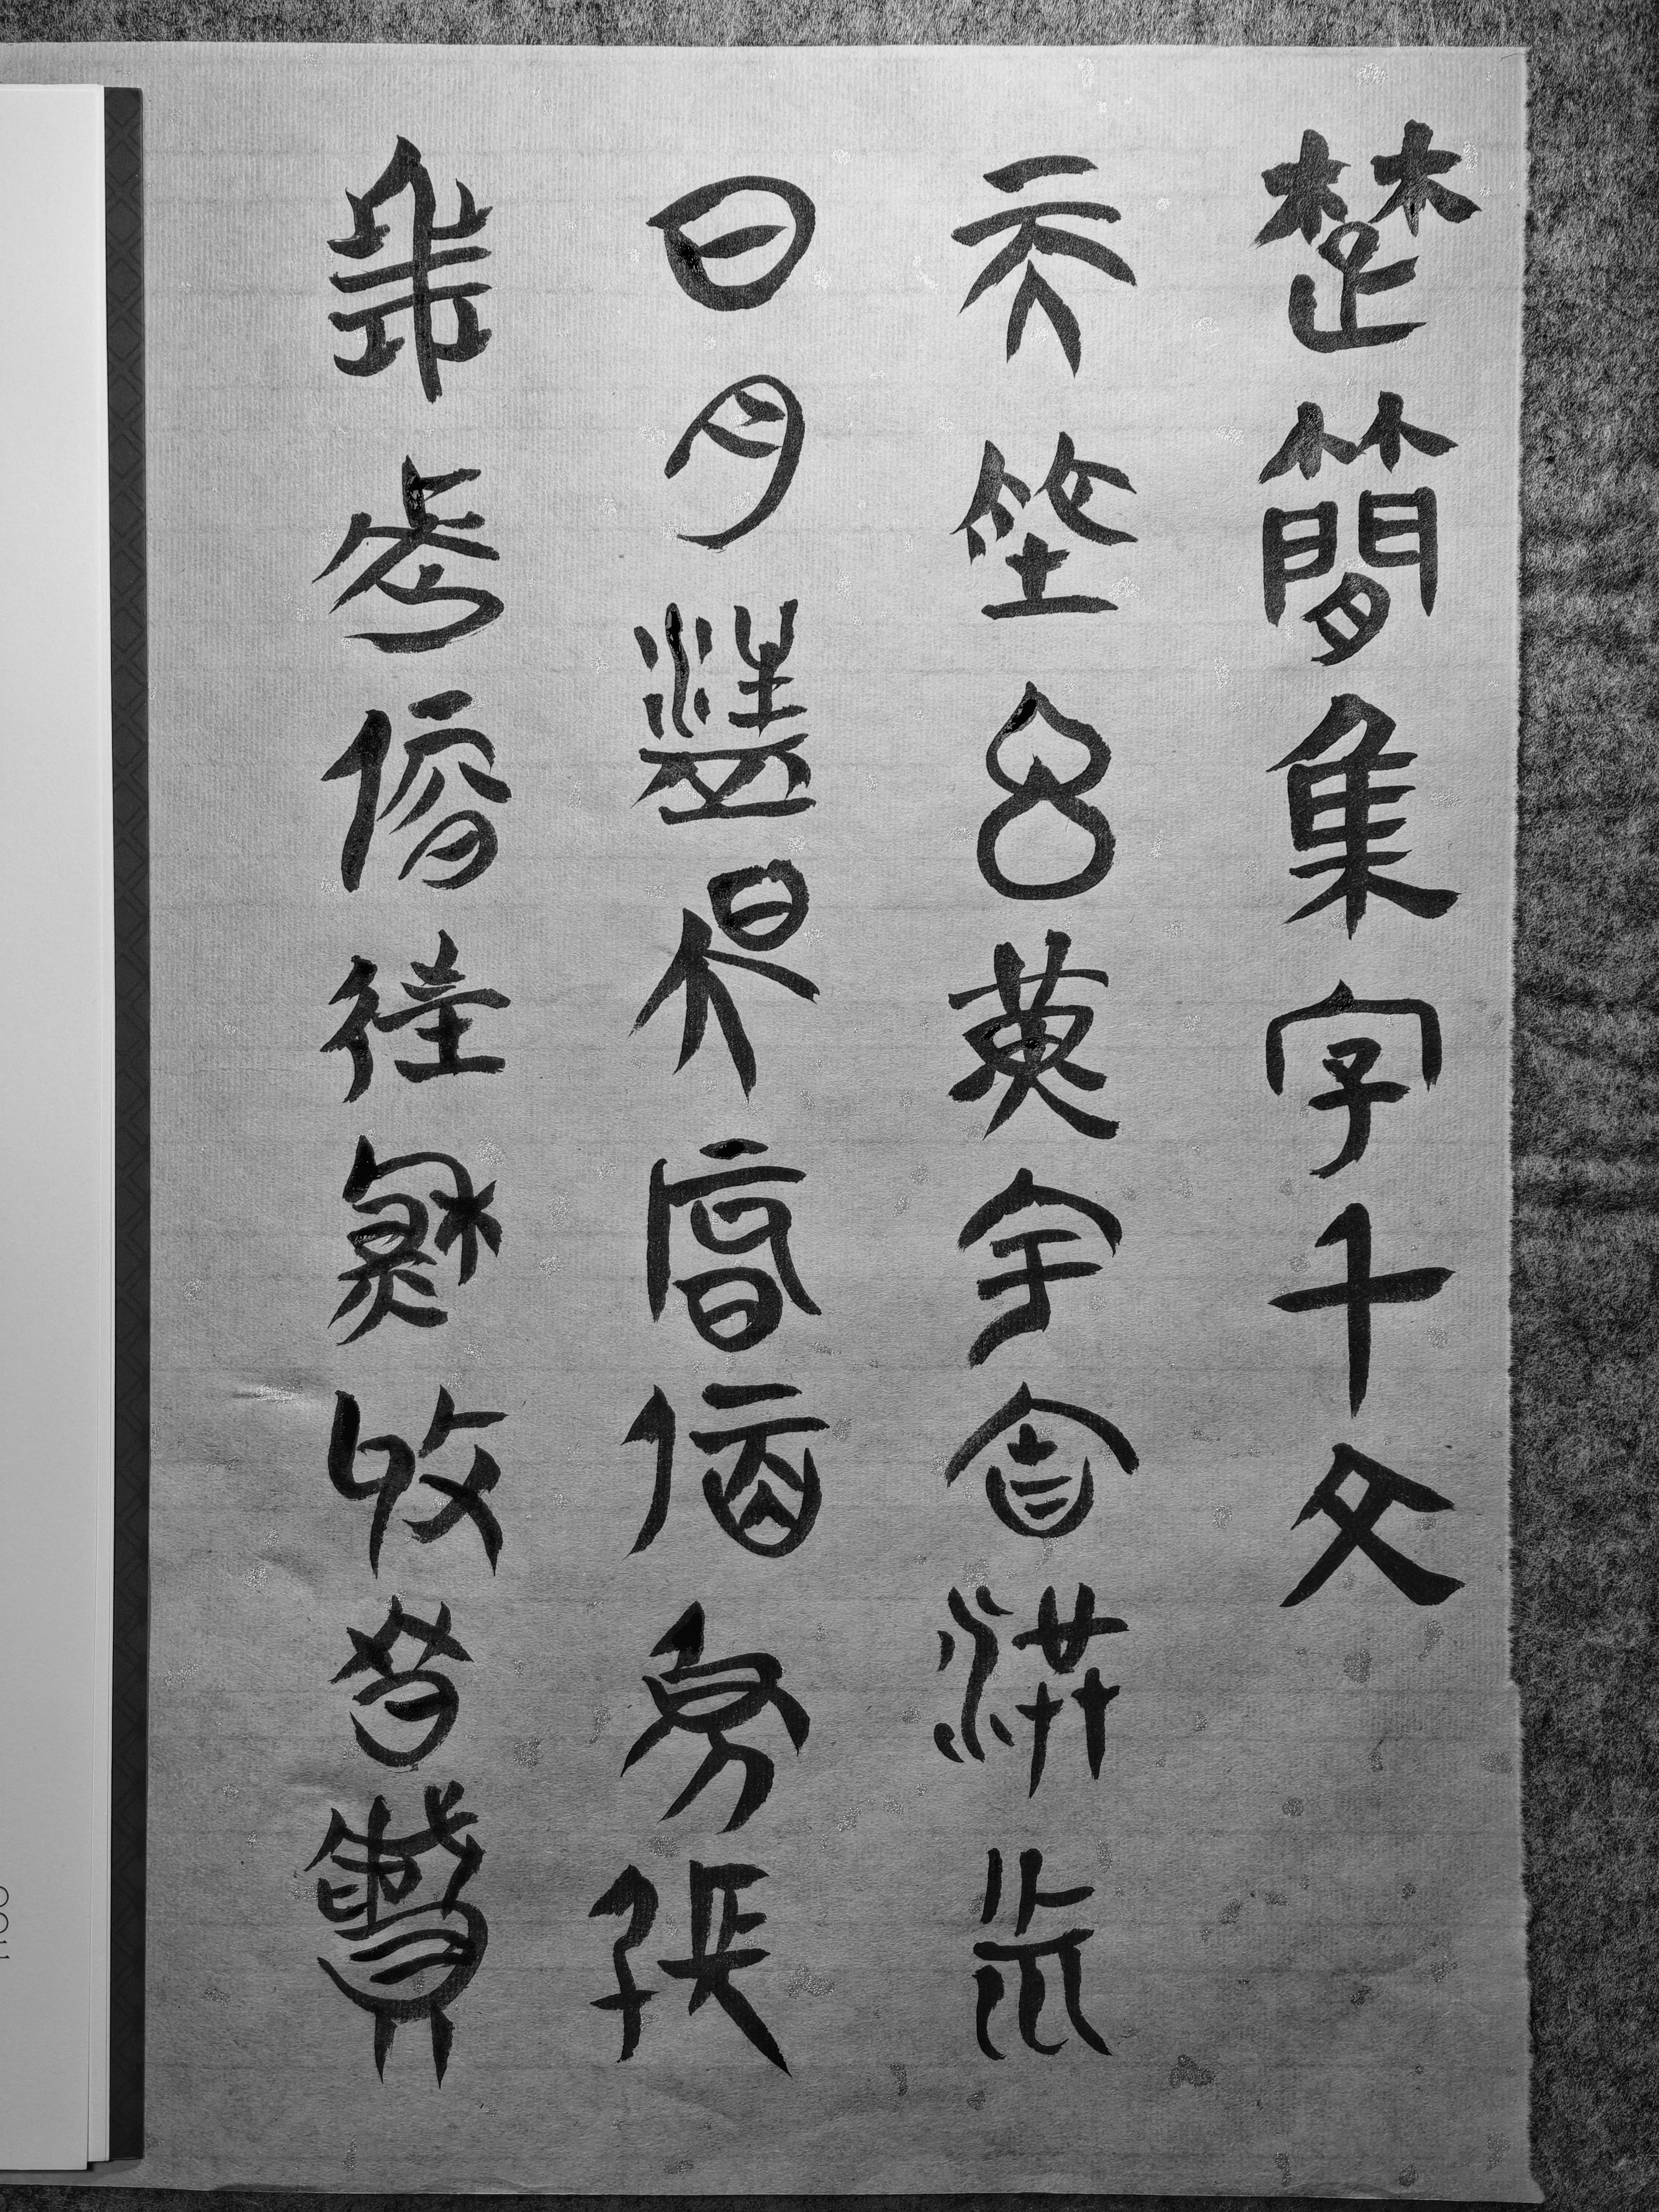 楚簡集字千文
天地玄黃宇宙洪荒
日月盈昃辰宿列張
寒來暑往秋收冬藏